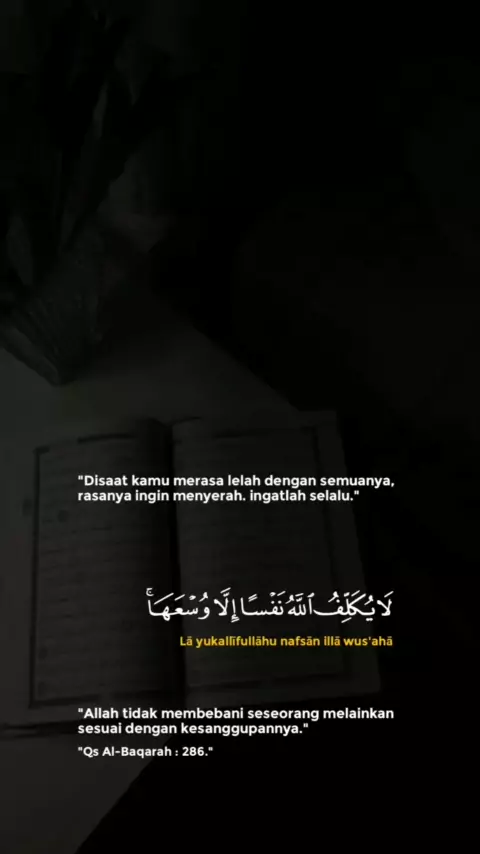 "Disaat kamu merasa lelah dengan semuanya,
rasanya ingin menyerah. ingatlah selalu."
لَا يُكَلِّفُ ٱللَّهُ نَفْسًا إِلَّا وُسْعَهَاۚ
Lā yukallīfullāhu nafsān illā wus'ahā
"Allah tidak membebani seseorang melainkan
sesuai dengan kesanggupannya."
"Qs Al-Baqarah : 286."